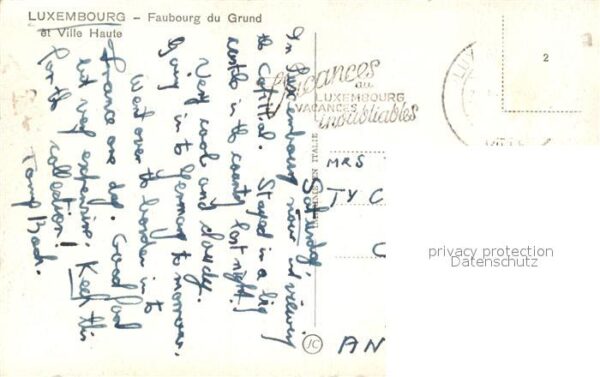 LUXEMBOURG – Faubourg du Grund
et Ville Haute
Saturday,
In Luxembourg now viewing
the Capitial. Stayed in a big
castle in the county last night!
Very cool and cloudy.
Going in to Germany to morrow.
West over to borden in to
France one day. Good food
but very expensive. Keep this
for the collection!
Vacances
au
LUXEMBOURG
VACANCES
inoubliables
IN ITALIE
MRS
TY C
C
AN
JC
2
privacy protection
Datenschutz